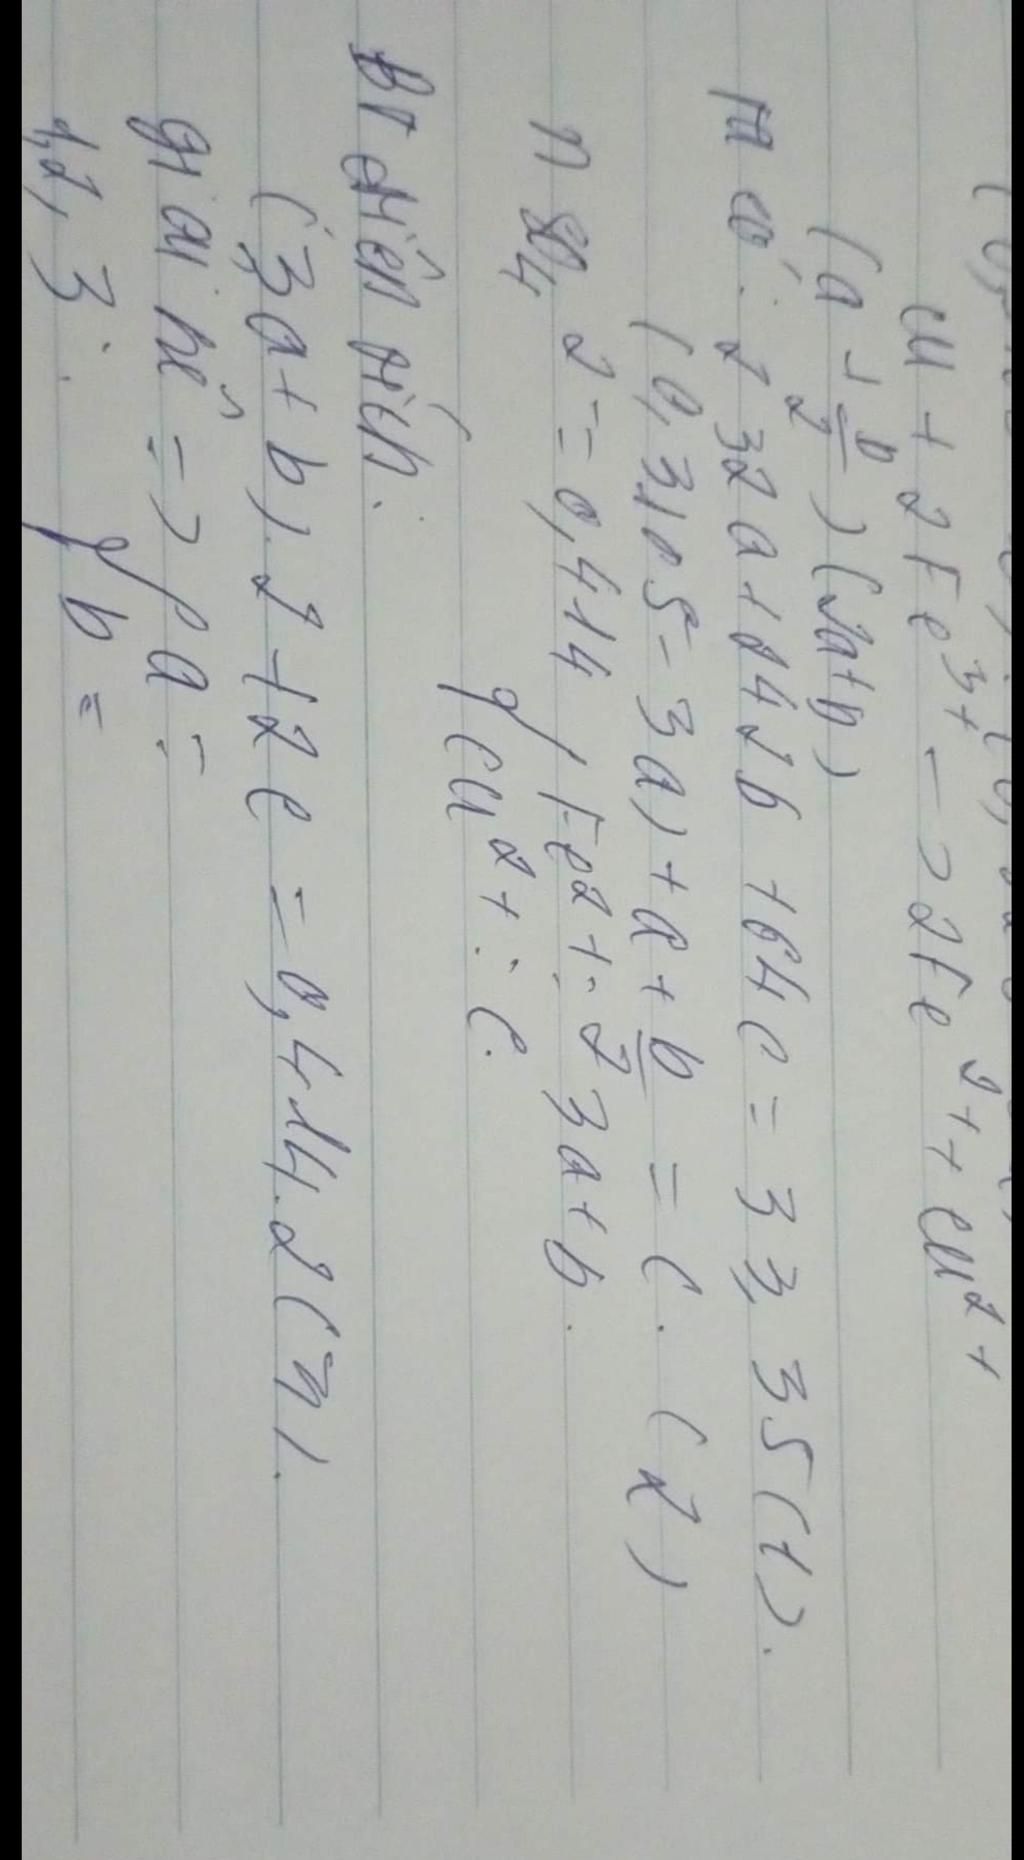 Cu + 2Fe³⁺ -> 2Fe²⁺ + Cu²⁺
(a + b/2) (2a+b)
Ta có: 232a + 242b + 64c = 33,35 (1).
(0,3105 - 3a) + a + b/2 = c. (2)
n SO₄²⁻ = 0,414 { Fe²⁺: 3a+b.
{ Cu²⁺: c.
BT điện tích.
(3a+b).2 + 2c = 0,414.2 (3).
giải hệ => { a =
1,2,3. { b =